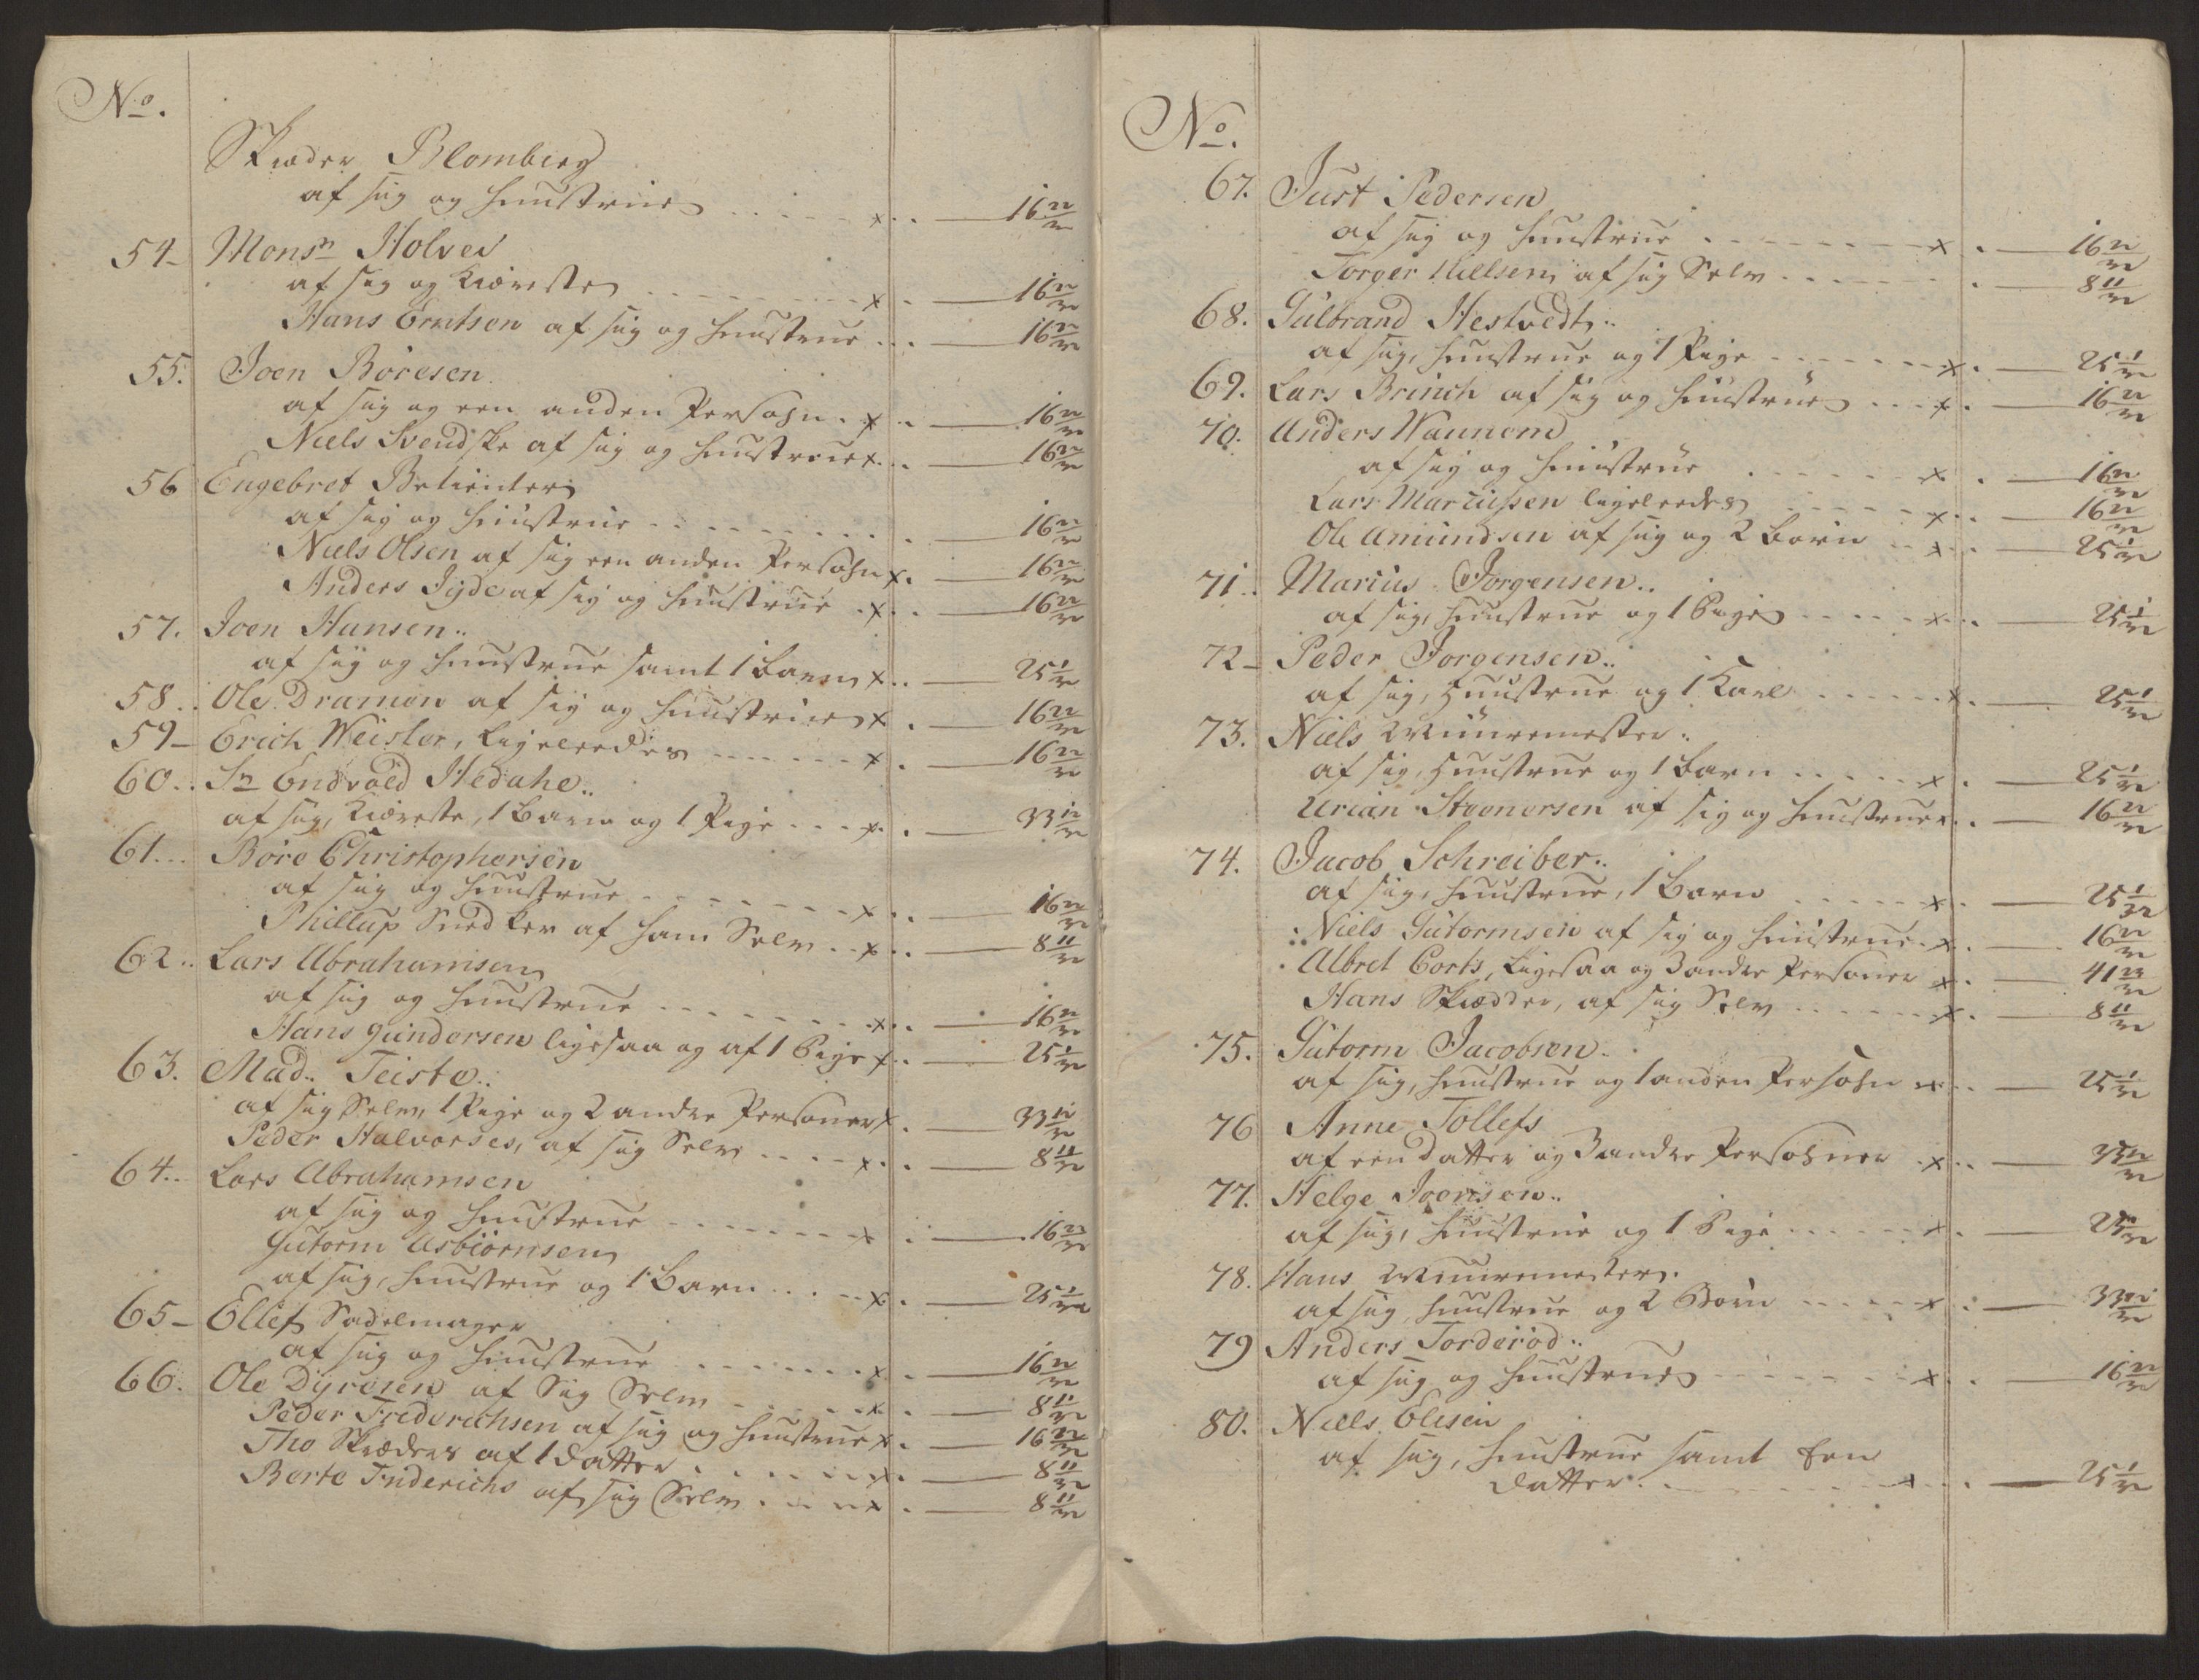 No.
Skræder Blomberg
af sig og Huustrue x 16 22/32
54 Monsr Holver
af sig og Kiæreste x 16 22/32
Hans Erntsen af sig og Huustrue 16 22/32
55. Joen Böresen
af sig og een anden Persohn x 16 22/32
Niels Svendske af sig og Huustrue x 16 22/32
56 Engebret Betienter
af sig og Huustrue 16 22/32
Niels Olsen af sig een anden Persohn x 16 22/32
Anders Jyde af sig og Huustrue x 16 22/32
57. Joen Hansen
af sig og Huustrue samt 1 barn x 25 1/32
58 Ole Dramen af sig og Huustrue x 16 22/32
59 Erich Weisler, Ligeleedes x 16 22/32
60 Sr Endvold Hedahe
af sig, Kiæreste, 1 barn og 1 Pige x 33 12/32
61 Böre Christophersen
af sig og Huustrue x 16 22/32
Phillup Snedker af ham Selv x 8 11/32
62 Lars Abrahamsen
af sig og Huustrue x 16 22/32
Hans Gundersen ligesaa og af 1 Pige x 25 1/32
63. Mad. Teiste
af sig Selv, 1 Pige og 2 andre Personer x 33 12/32
Peder Halvorses, af sig Selv x 8 11/32
64 Lars Abrahamsen
af sig og Huustrue x 16 22/32
Gutorm Asbiörnsen
af sig, Huustrue og 1 Barn x 25 1/32
65 Ellef Sadelmager
af sig og Huustrue x 16 22/32
66. Ole Dyresen af Sig Selv x 8 11/32
Peder Friderichsen af sig og Huustrue x 16 22/32
Tho Skræders af 1 datter x 8 11/32
Berte Friderichs af sig Selv x 8 11/32
No.
67. Just Pedersen
af sig og Huustrue x 16 22/32
Torger Nillsen af sig Selv 8 11/32
68. Gulbrand Hestvedt
af sig, Huustrue og 1 Pige x 25 1/32
69. Lars Brinch af sig og Huustrue x 16 22/32
70. Anders Waunem
af sig og Huustrue x 16 22/32
Lars Marcussen ligeleedes x 16 22/32
Ole Amundsen af sig og 2 börn x 25 1/32
71 Marius Jorgensen
af sig, Huustrue og 1 Pige x 25 1/32
72 Peder Jorgensen
af sig, Huustrue og 1 Karl x 25 1/32
73. Niels Muuremester
af sig, Huustrue og 1 barn x 25 1/32
Urian Steenersen af sig og Huustrue x 16 22/32
74. Jacob Schreiber
af sig, Huustrue, 1 barn x 25 1/32
Niels Gutormsen af sig og Huustrue x 16 22/32
Albret Corts, Ligesaa og 3 andre Personer x 41 23/32
Hans Skrædder, af sig Selv x 8 11/32
75. Gutorm Jacobsen
af sig, Huustrue og 1 anden Persohn x 25 1/32
76 Anne Tollefs
af een datter og 3 andre Persohner x 33 12/32
77. Helge Joensen
af sig, Huustrue og 1 Pige x 25 1/32
78. Hans Muuremester
af sig, Huustrue og 2 Börn x 33 12/32
79 Anders Torderöd
af sig og Huustrue x 16 22/32
80. Niels Elesen
af sig, Huustrue samt Een
datter x 25 1/32